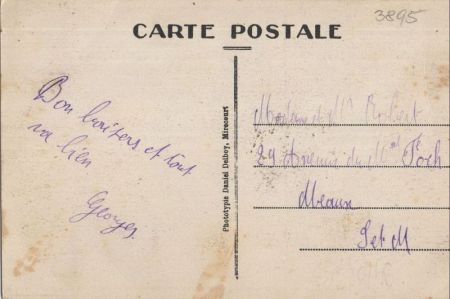 3895
CARTE POSTALE
Bon baisers et tout
va bien
Georges
Phototypie Daniel Delboy, Mirecourt
Madame et Mr Robert
29 Avenue du Mal Foch
Meaux
S et M